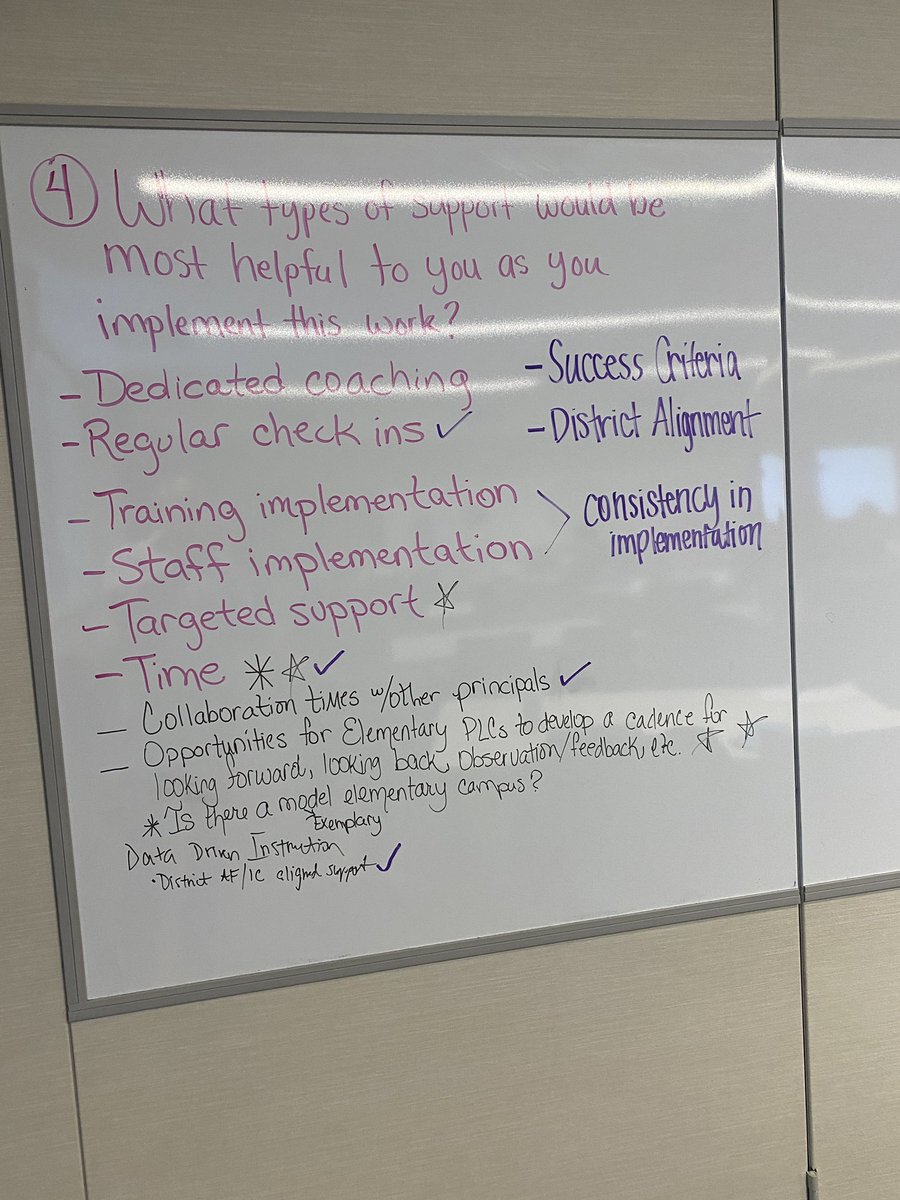 4 What types of support would be
most helpful to you as you
implement this work?
- Dedicated coaching
- Regular check ins ✓
- Success Criteria
- District Alignment
- Training implementation
- Staff implementation
consistency in
implementation
- Targeted support ☆
- Time * ☆ ✓
- Collaboration times w/other principals ✓
- Opportunities for Elementary PLCs to develop a cadence for
looking forward, looking back, Observation/feedback, etc. ☆ ☆
* Is there a model elementary campus?
Exemplary
Data Driven Instruction
• District AF/IC aligned support ✓